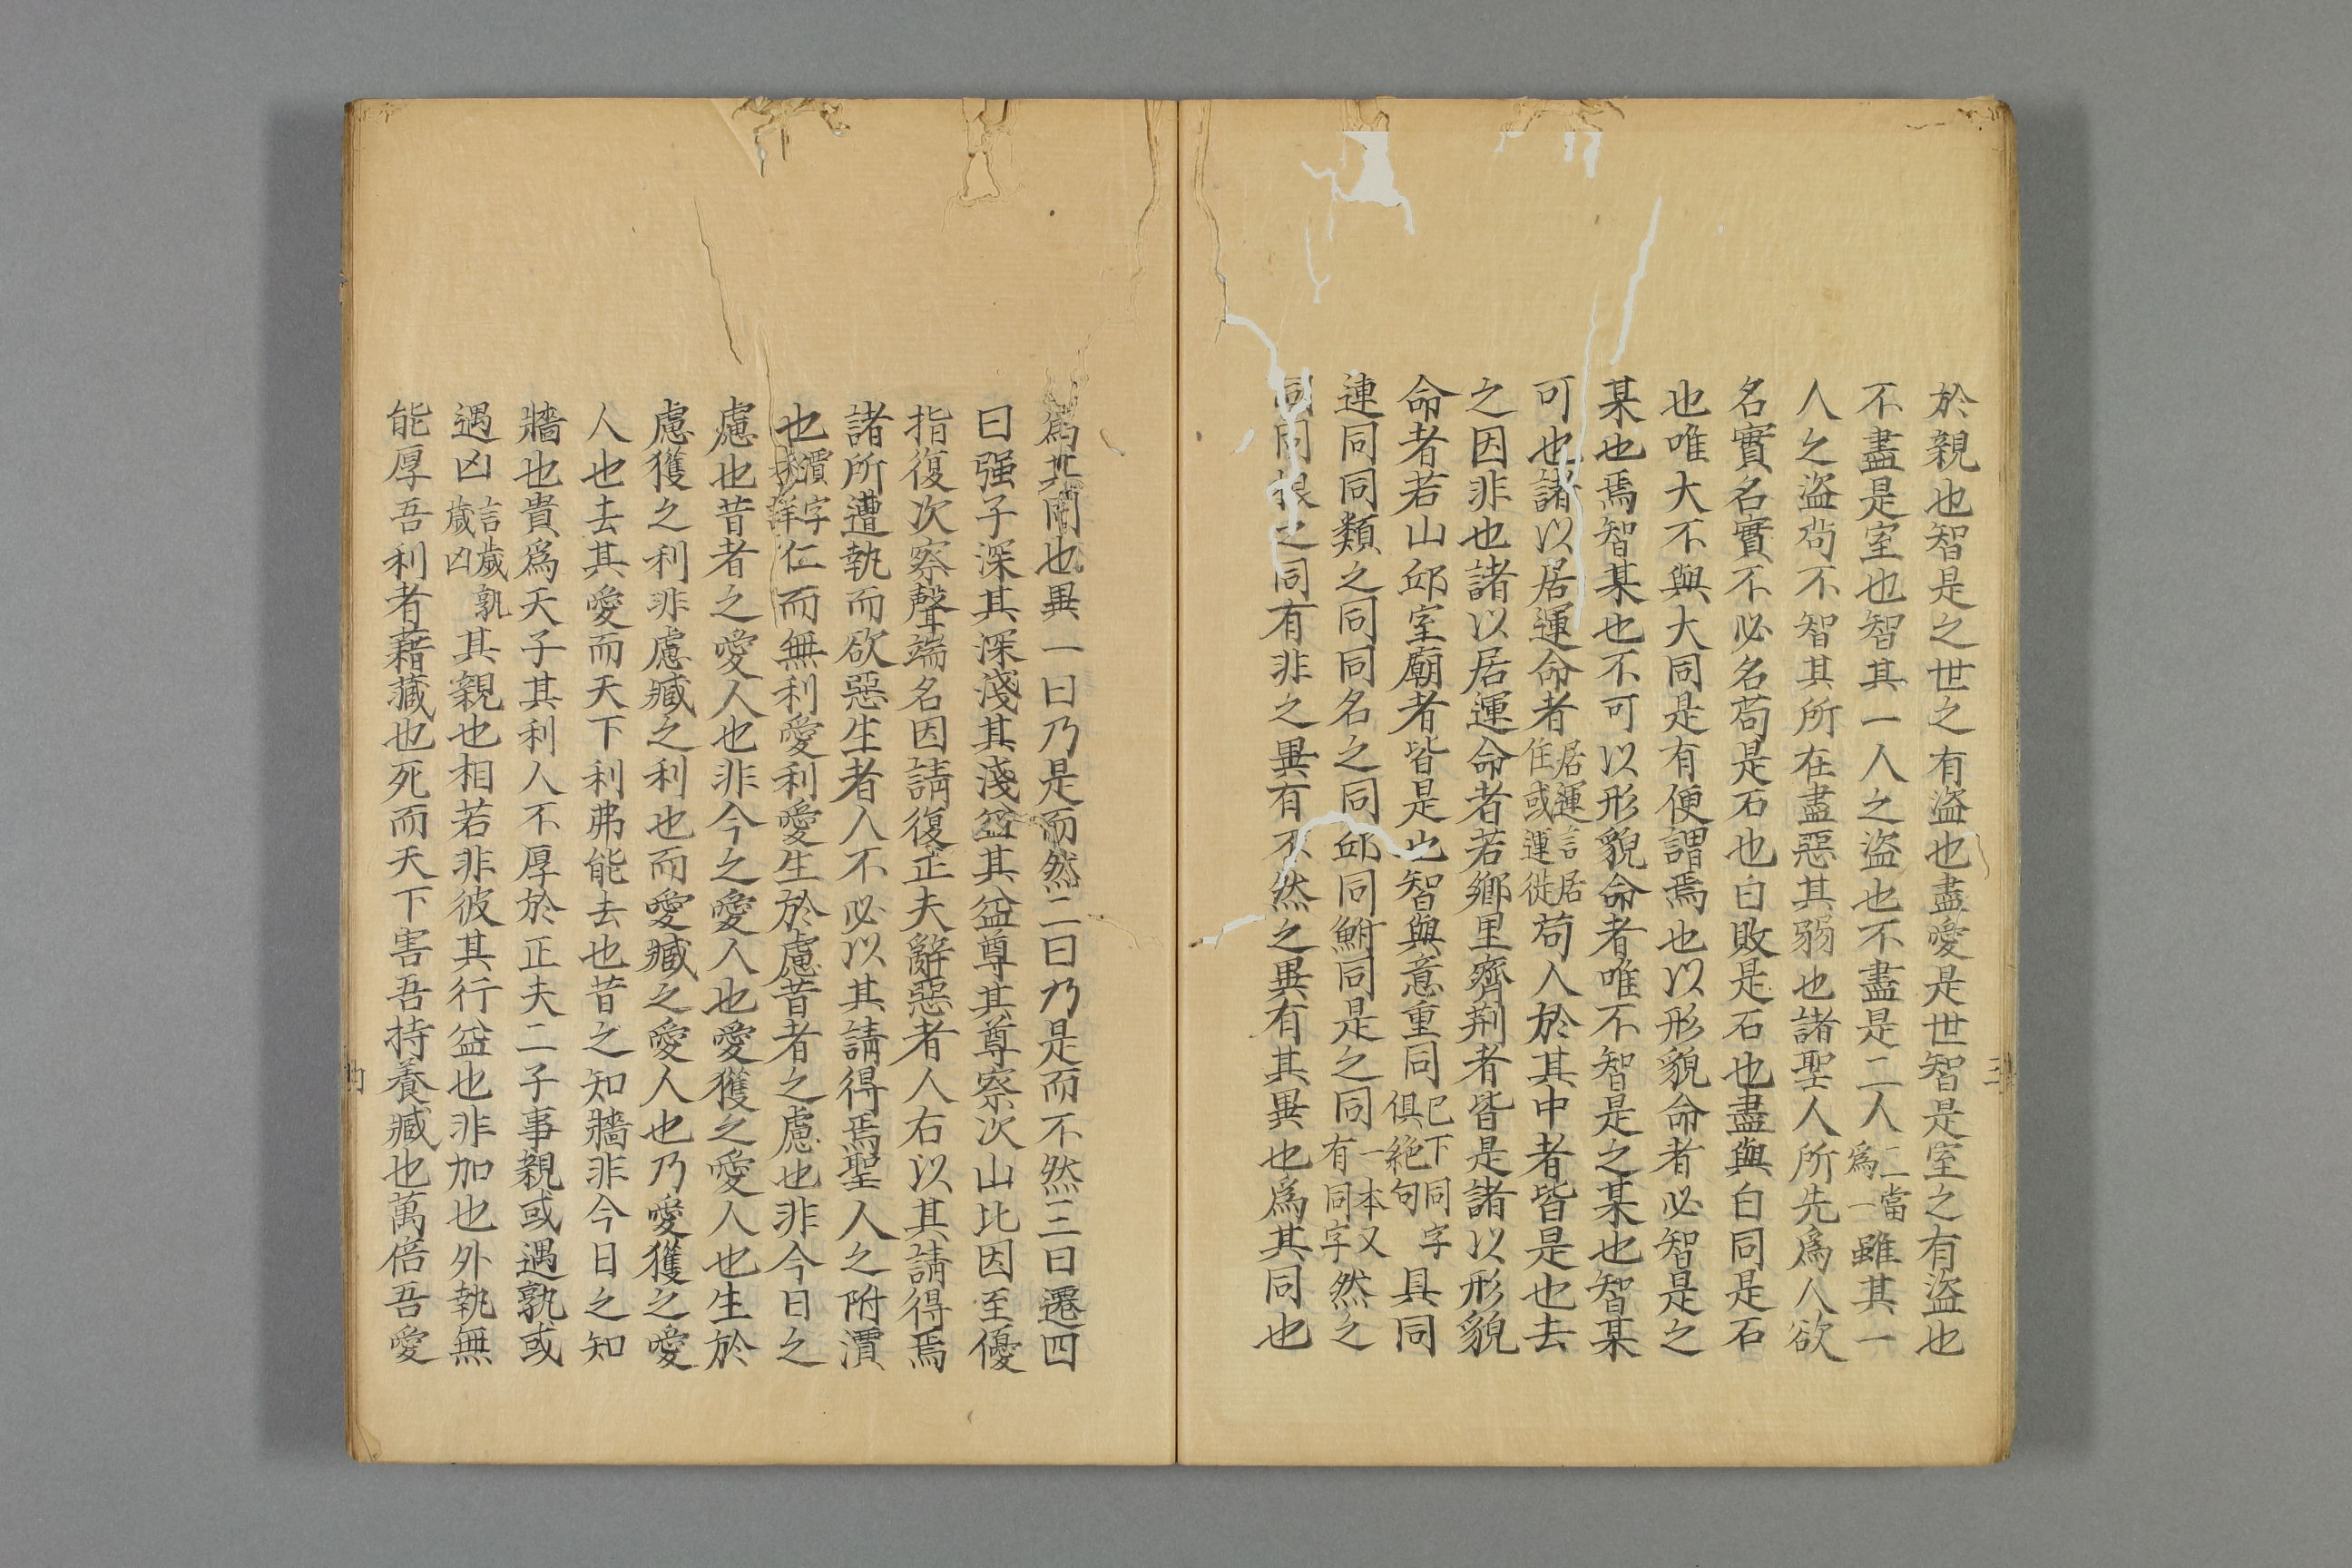 於親也智是之世之有盜也盡愛是世智是室之有盜也
不盡是室也智其一人之盜也不盡是二人二當爲一雖其一
人之盜苟不智其所在盡惡其弱也諸聖人所先爲人欲
名實名實不必名苟是石也白敗是石也盡與白同是石
也唯大不與大同是有便謂焉也以形貌命者必智是之
某也焉智某也不可以形貌命者唯不智是之某也智某
可也諸以居運命者居運言居住或運徙苟人於其中者皆是也去
之因非也諸以居運命者若鄉里齊荆者皆是諸以形貌
命者若山邱室廟者皆是也智與意重同已下同字俱絶句具同
連同同類之同同名之同邱同鮒同是之同一本又有同字然之
同同根之同有非之異有不然之異有其異也爲其同也
爲其同也異一曰乃是而然二曰乃是而不然三曰遷四
曰强子深其深淺其淺益其益尊其尊察次山比因至優
指復次察聲端名因請復正夫辭惡者人右以其請得焉
諸所遭執而欲惡生者人不必以其請得焉聖人之附瀆
也仁而無利愛利愛生於慮昔者之慮也非今日之
慮也昔者之愛人也非今之愛人也愛獲之愛人也生於
慮獲之利非慮臧之利也而愛臧之愛人也乃愛獲之愛
人也去其愛而天下利弗能去也昔之知牆非今日之知
牆也貴爲天子其利人不厚於正夫二子事親或遇孰或
遇凶言歲孰歲凶其親也相若非彼其行益也非加也外執無
能厚吾利者藉藏也死而天下害吾持養臧也萬倍吾愛